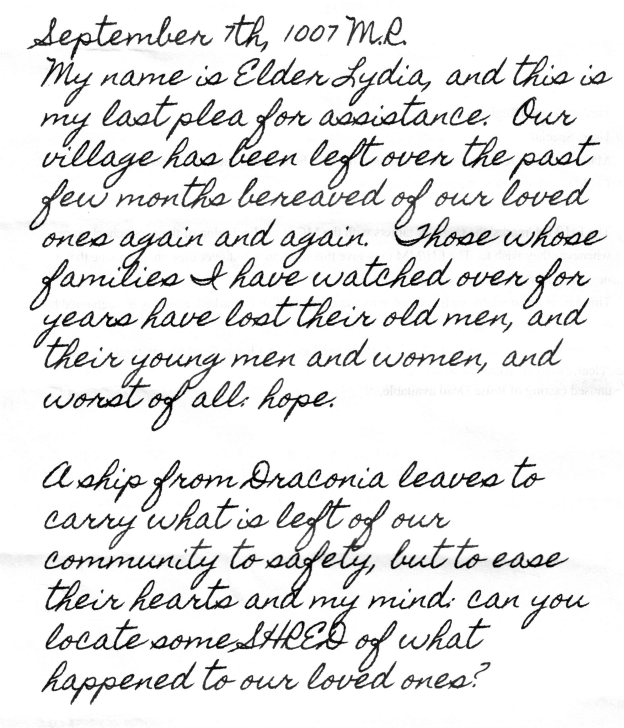 September 7th, 1007 M.R.
My name is Elder Lydia, and this is
my last plea for assistance. Our
village has been left over the past
few months bereaved of our loved
ones again and again. Those whose
families I have watched over for
years have lost their old men, and
their young men and women, and
worst of all: hope.
A ship from Draconia leaves to
carry what is left of our
community to safety, but to ease
their hearts and my mind: can you
locate some SHRED of what
happened to our loved ones?